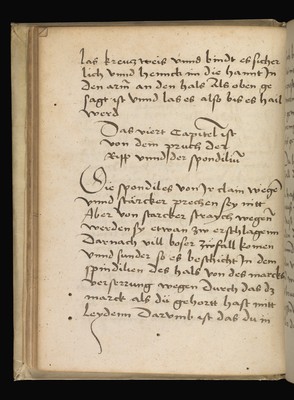 las kreuzweis unns bindt es sicher
lich unnd hennck im die hannt In
den arm an den hals Als oben ge
sagt ist unnd las es also bis es hail
werd
Das viert Capitel ist
von dem pruch der
Ripp unnd der spondiliu
Die spondiles von Jr clain wegen
unnd starcker prechen sey nitt
Aber von starcker straych wegen
werden sy etwan zw erschlagenn
Darnach vill boser zwfall komen
unnd sunder so es beschicht In dem
spindilien des hals von des marcks
verserung wegen Durch das dz
marck als du gehortt hast mitt
leydenn Darumb ist das du in